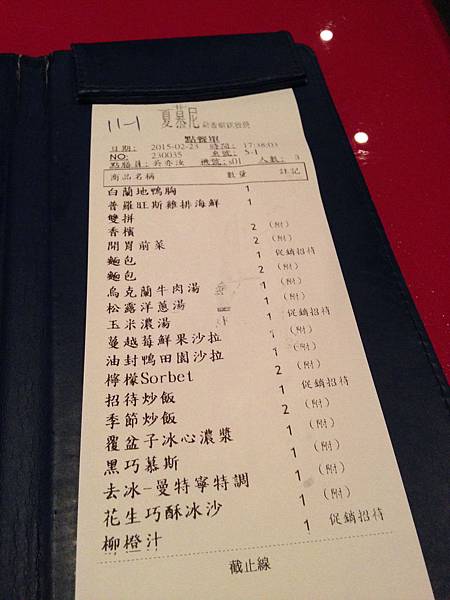 11-1
夏慕尼 新香榭鉄板燒
點餐單
日期: 2015-02-23 時間: 17:38:03
NO: 230035 桌號: 5-1
點膳員: 機號: s01 人數: 3
商品名稱 數量 註記
白蘭地鴨胸 1
普羅旺斯雞排海鮮 1
雙拼
香檳 2 (附)
開胃前菜 2 (附)
麵包 1 促銷招待
麵包 2 (附)
烏克蘭牛肉湯 1 (附)
松露洋蔥湯 1 促銷招待
玉米濃湯 1 (附)
蔓越莓鮮果沙拉 1 (附)
油封鴨田園沙拉 1 (附)
檸檬Sorbet 2 (附)
招待炒飯 1 促銷招待
季節炒飯 2 (附)
覆盆子冰心濃漿 1 (附)
黑巧慕斯 1 (附)
去冰-曼特寧特調 1 (附)
花生巧酥冰沙 1 (附)
柳橙汁 1 促銷招待
截止線